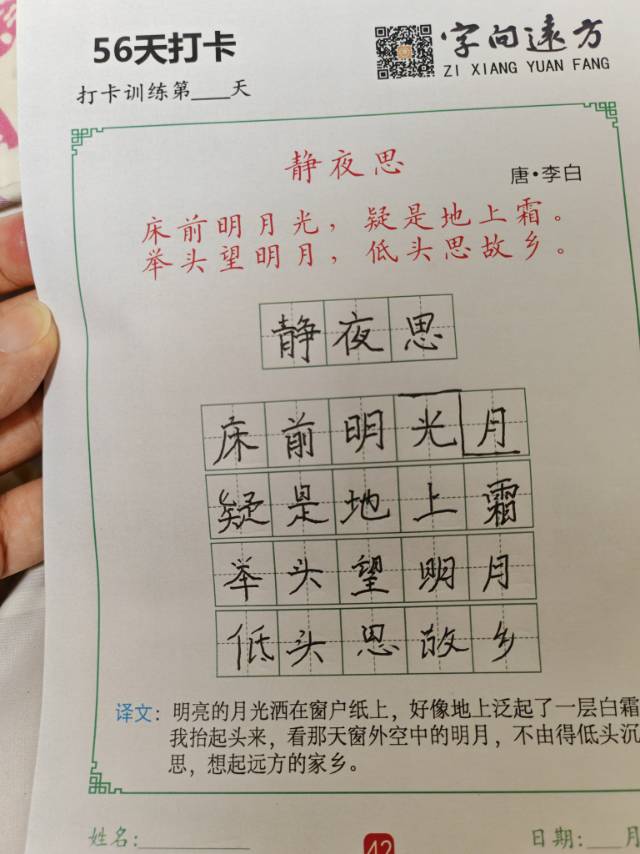 56天打卡
字向远方
ZI XIANG YUAN FANG
打卡训练第____天
静夜思
唐·李白
床前明月光，疑是地上霜。
举头望明月，低头思故乡。
静夜思
床前明光月
疑是地上霜
举头望明月
低头思故乡
译文：明亮的月光洒在窗户纸上，好像地上泛起了一层白霜
我抬起头来，看那天窗外空中的明月，不由得低头沉
思，想起远方的家乡。
姓名：
42
日期：___月